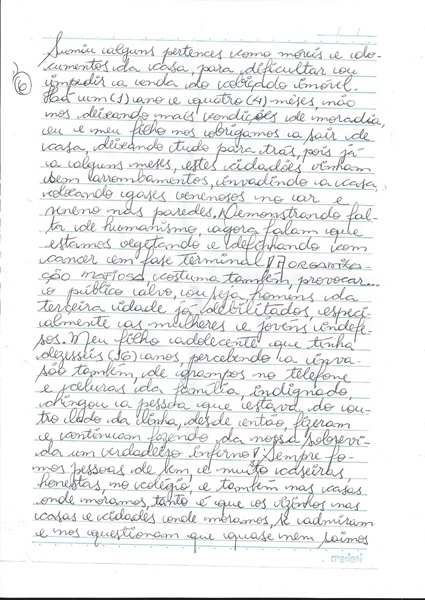 Sumiu alguns pertences como móveis e do-
cumentos da casa, para dificultar ou
impedir a venda do cobiçado imóvel.
6
Há um (1) ano e quatro (4) mêses, não
nos deixando mais condições de moradia,
eu e meu filho nos obrigamos a sair de
casa, deixando tudo para trás, pois já
a alguns meses, estes cidadões vinham
sem arrombamentos, invadindo a casa,
colocando gases venenosos no ar e
veneno nas paredes. Demonstrando fal-
ta de humanismo, agora falam que
estamos vegetando e definhando com
cancer em fase terminal! A ORGANIZA-
ÇÃO MAFIOSA, costuma também, provocar...
o público alvo, ou seja, homens da
terceira cidade já debilitados, especi-
almente as mulheres e jovéns indefe-
sos. Meu filho adolecente que tinha
dezesseis (16) anos, percebendo a inva-
são também, de grampos no telefone
e celulares da família, indignado,
chingou a pessoa que estava do ou-
tro lado da linha, desde então, fizeram
e continuam fazendo da nossa sobrevi-
da um verdadeiro inferno! Sempre fo-
mos pessoas de bem, e muito caseiras,
honestas, no colégio, e também nas casas
onde moramos, tanto é que os vizinhos nas
casas e cidades onde moramos, se admiram
e nos questionam que quase nem saímos